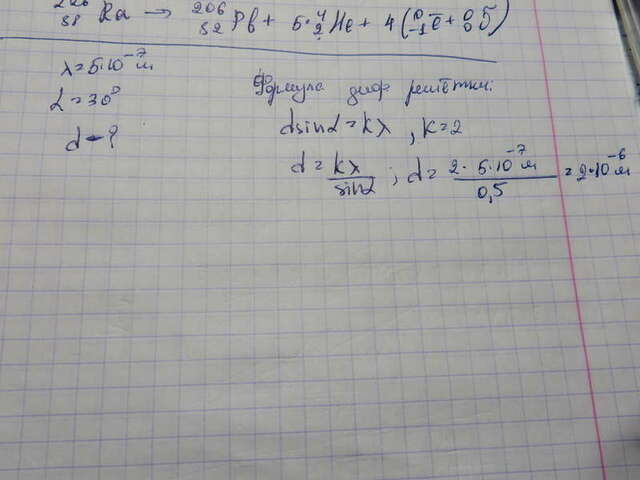 226 88 Ra → 206 82 Pb + 5·4 2 He + 4(0 -1 e̅ + 0 0 ν̃)
λ = 5·10⁻⁷ м
α = 30°
d - ?
Формула диф решётки:
d sinα = kλ , k = 2
d = kλ / sinα ; d = 2·5·10⁻⁷ м / 0,5 = 2·10⁻⁶ м